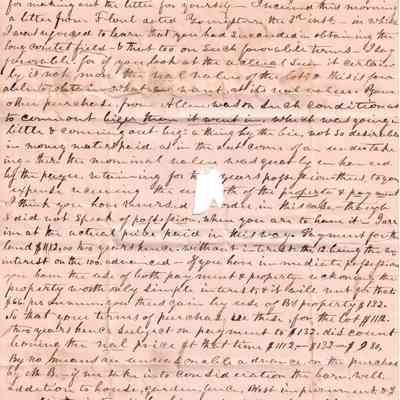 for making out the letter for yourself — I received this morning
a letter from Floril dated Thompson the 3d inst. in which
I was rejoiced to learn that you had succeeded in obtaining the
long coveted field & that too on such favorable terms — I say
favorable for if you look at the actual sum it certain
ly is not more than real value of the lot & this is favor
able to obtain what we want at its real value. Your
other purchase from Allen was on such conditions as
to come out biger than it went in
little & coming out big a thing by the bie, not so desirable
in money matters paid as in the out come of an undertak
ing. Here the nominal value was greatly enhanced
by the payee retaining for two years possession thus to your
expense reversing the use both of the property & payment
I think you have reversed order in this case though
I did not speak of possession when you are to have it — I arr
ive at the actual price paid in this way. Payment for the
land $112.00 two years hence without interest the 12 being the in
terest on the 100. advanced — If you have immediate possession
you have the use of both payment & property reckoning the
property worth only simple interest & it will net you that
$66 per annum you thus gain by use of property $132.
So that your terms of purchase are these, for the lot $1112.
two years hence subject on payment to $132 discount
leaving the real price at that time $1112 — $132 — $980,
By no means an unreasonable advance on the purchase
by Mr B— if we take into consideration the barn, well,
addition to house, garden fence, West improvement &